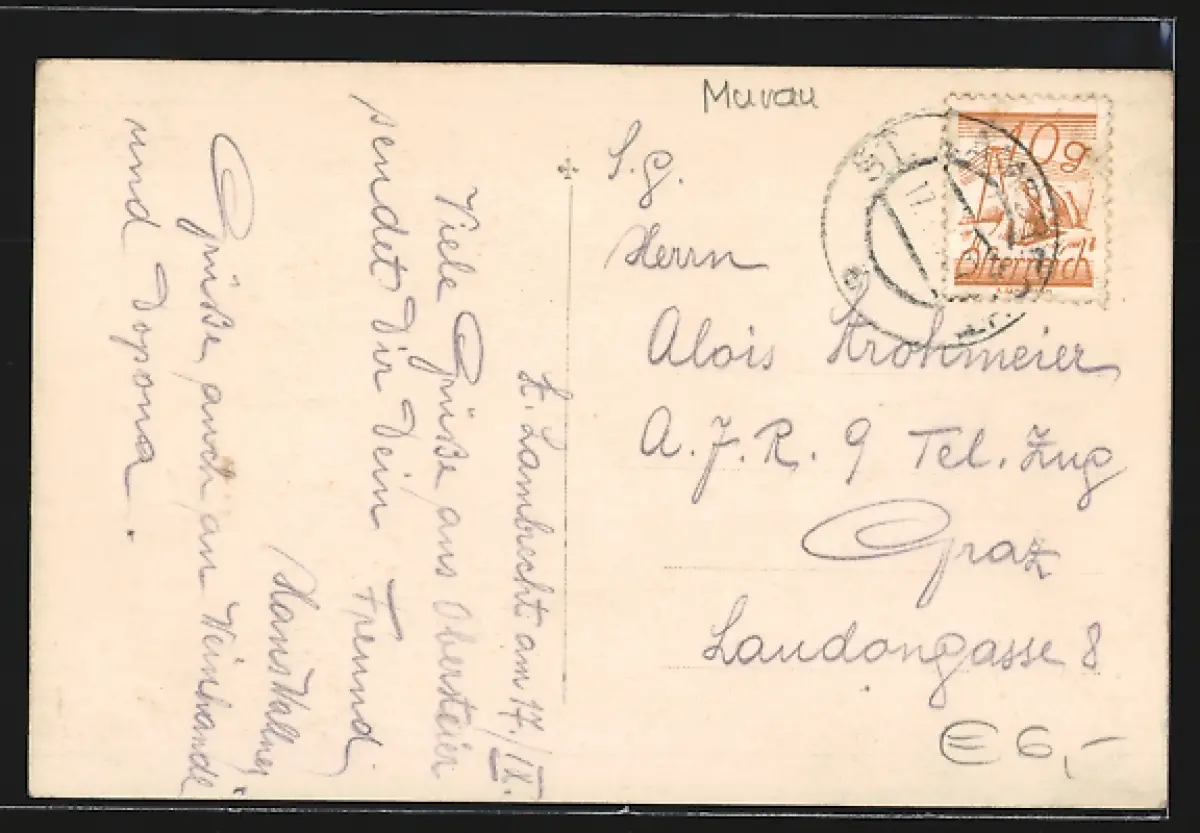 Murau
10g
Österreich
ST. LAMBR
17.
S.g.
Herrn
Alois Strohmeier
A.J.R. 9 Tel. Zug
Graz
Laudongasse 8
€ 6,-
St. Lambrecht am 17./IX.
Viele Grüße aus Obersteier
sendet Dir Dein Freund
Hans Wallner
Grüße auch an Weinhandl
und Dopona.